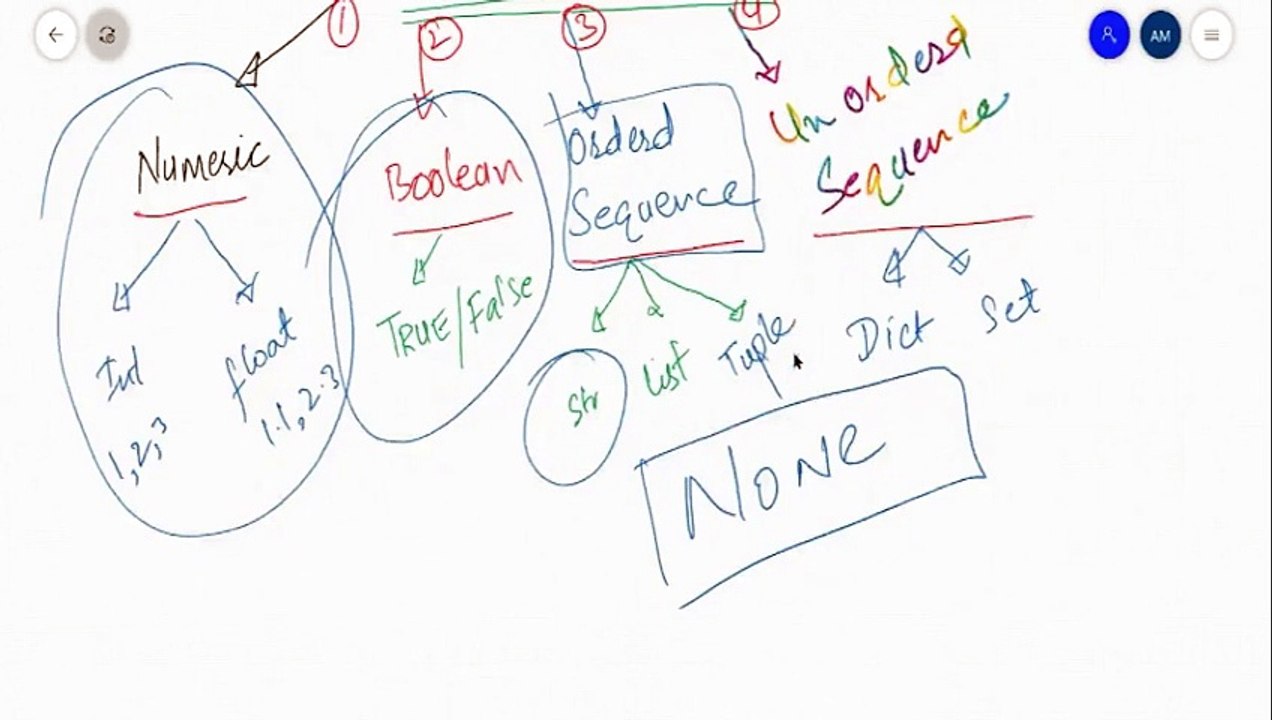 1
2
3
4
AM
Numeric
Boolean
Orderd
Sequence
Un orderd
Sequence
Int
float
1,2,3
1.1, 2.3
TRUE/False
Str
List
Tuple
Dict
Set
NONE